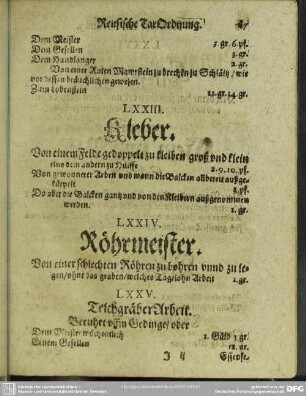 Reusische TaxOrdnung.
Dem Meister 5. gr. 6. pf.
Dem Gesellen 3. gr.
Dem Handlanger 2. gr.
Von einer Ruten Mawrstein zu brechen zu Schlätz / wie
vor dessen bräuchlichen gewesen.
Zum Lobenstein 13. gr. 14. gr.
LXXIII.
Kleber.
Von einem Felde gedoppelt zu kleiben groß vnd klein
eins dem andern zu Hülffe 8. 9. 10. pf.
Von gewonnerer Arbeit vnd wann die Balcken allbereit außge-
3. pf.
Do aber die Balcken gantz vnd von den Kleibern außgenommen
werden. 1. gr.
LXXIV.
Röhrmeister.
Von einer schlechten Röhren zu bohren vnnd zu le-
gen / ohne das graben / welches Tagelohn Arbeit 1. gr.
LXXV.
Teichgräber Arbeit.
Beruhet vffm Gedinge / oder
Dem Meister wöchentlich 1. Güld 3 gr.
Einem Gesellen 18. gr.
J ij